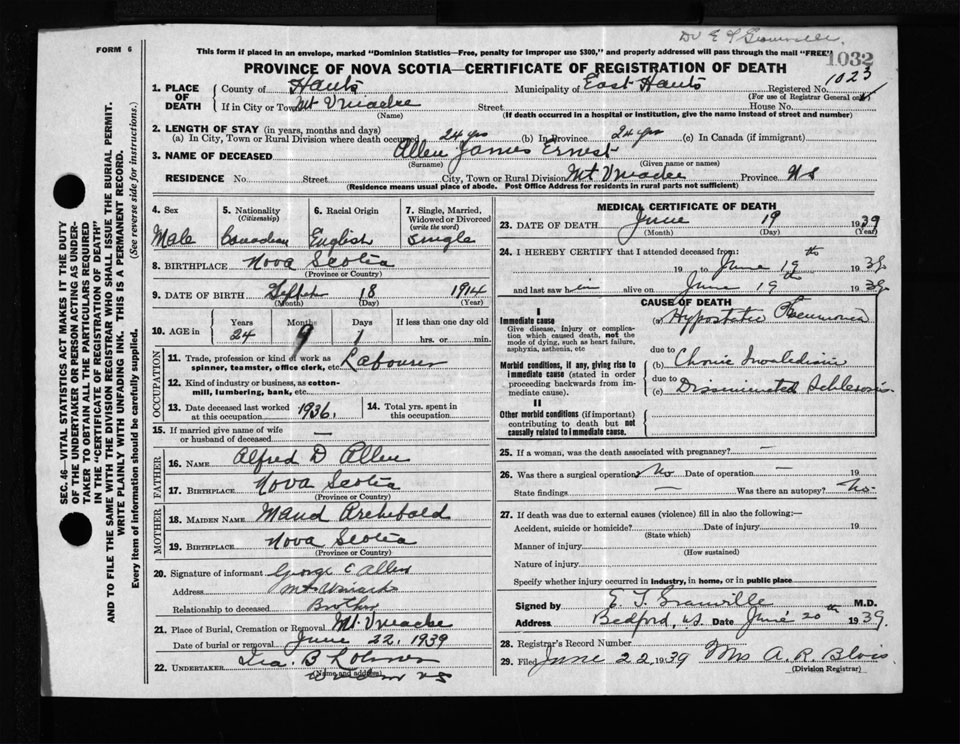 Dr E T Granville
FORM 6
This form if placed in an envelope, marked "Dominion Statistics—Free, penalty for improper use $300," and properly addressed will pass through the mail "FREE"
1032
PROVINCE OF NOVA SCOTIA—CERTIFICATE OF REGISTRATION OF DEATH
1. PLACE OF DEATH
County of Hants
Municipality of East Hants
Registered No. 1023
(For use of Registrar General only)
If in City or Town Mt Uniacke
(Name)
Street
House No.
(If death occurred in a hospital or institution, give the name instead of street and number)
2. LENGTH OF STAY (in years, months and days)
(a) In City, Town or Rural Division where death occurred 24 yrs (b) In Province 24 yrs (c) In Canada (if immigrant)
3. NAME OF DECEASED Allen James Ernest
(Surname) (Given name or names)
RESIDENCE No. Street City, Town or Rural Division Mt Uniacke Province N S
(Residence means usual place of abode. Post Office Address for residents in rural parts not sufficient)
4. Sex
Male
5. Nationality
(Citizenship)
Canadian
6. Racial Origin
English
7. Single, Married, Widowed or Divorced
(write the word)
Single
8. BIRTHPLACE Nova Scotia
(Province or Country)
9. DATE OF BIRTH 18 1914
(Month) (Day) (Year)
10. AGE in
Years Months Days If less than one day old
24 9 1 hrs. or min.
OCCUPATION
11. Trade, profession or kind of work as spinner, teamster, office clerk, etc. Labourer
12. Kind of industry or business, as cotton-mill, lumbering, bank, etc.
13. Date deceased last worked at this occupation 1936.
14. Total yrs. spent in this occupation
15. If married give name of wife or husband of deceased —
FATHER
16. NAME Alfred D Allen
17. BIRTHPLACE Nova Scotia
(Province or Country)
MOTHER
18. MAIDEN NAME Maud Archibald
19. BIRTHPLACE Nova Scotia
(Province or Country)
20. Signature of informant George C Allen
Address Mt Uniacke
Relationship to deceased Brother
21. Place of Burial, Cremation or Removal Mt. Uniacke
Date of burial or removal June 22, 1939
22. UNDERTAKER Ira. B
(Name and address)
MEDICAL CERTIFICATE OF DEATH
23. DATE OF DEATH June 19 1939
(Month) (Day) (Year)
24. I HEREBY CERTIFY that I attended deceased from:
19 to June 19th 1939
and last saw h im alive on June 19th 1939
CAUSE OF DEATH
I
Immediate cause
Give disease, injury or complication which caused death, not the mode of dying, such as heart failure, asphyxia, asthenia, etc
(a) Hypostatic Pneumonia
due to
Morbid conditions, if any, giving rise to immediate cause (stated in order proceeding backwards from immediate cause)
(b) Chronic Invalidism
due to
(c) Disseminated Sclerosis
II
Other morbid conditions (if important) contributing to death but not causally related to immediate cause.
25. If a woman, was the death associated with pregnancy? —
26. Was there a surgical operation? No Date of operation — 19
State findings — Was there an autopsy? No.
27. If death was due to external causes (violence) fill in also the following:—
Accident, suicide or homicide? Date of injury 19
(State which)
Manner of injury
(How sustained)
Nature of injury
Specify whether injury occurred in industry, in home, or in public place
Signed by E. T. Granville M.D.
Address Bedford, N.S. Date June 20th 1939.
28. Registrar's Record Number
29. Filed June 22, 1939 Mrs A. R. Blois
(Division Registrar)
SEC. 46—VITAL STATISTICS ACT MAKES IT THE DUTY OF THE UNDERTAKER OR PERSON ACTING AS UNDERTAKER TO OBTAIN ALL THE PARTICULARS REQUIRED IN THE "CERTIFICATE OF REGISTRATION OF DEATH" AND TO FILE THE SAME WITH THE DIVISION REGISTRAR WHO SHALL ISSUE THE BURIAL PERMIT.
WRITE PLAINLY WITH UNFADING INK. THIS IS A PERMANENT RECORD.
Every item of information should be carefully supplied. (See reverse side for instructions.)